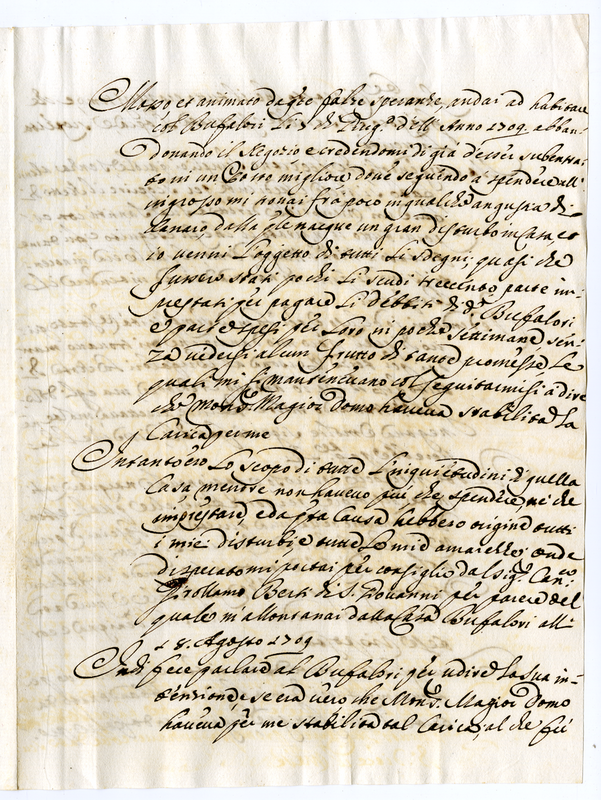 Mosso et animato da q.te false speranze, andai ad habitare
co' Bufalori li di Giug.o dell'Anno 1709. abban-
donando il Negozio e credendomi di già d'esser subentra-
to in un Posto migliore dove seguendo a spendere all'
ingrosso mi trovai frà poco in qualche angustia di
danaro, dalla q.le nacque un gran disturbo in Casa, et
io venni l'oggetto di tutti li sdegni, quasi che
fussero stati pochi li scudi trecento parte im-
prestati per pagare li debbiti di d.i Bufalori
e parte spesi per loro in poche settimane sen-
za vedersi alcun frutto di tante promesse le
quali mi si mantenevano col seguitarmisi a dire
che Mons.r Magior Domo haveva stabilita la
Carica per me
Intanto ero lo scopo di tutte l'inquietudini di quella
Casa, mentre non havevo più che spendere nè che
imprestare, e da q.ta causa hebbero origine tutti
i miei disturbi, e tutte le mie amarezze; onde
disperato mi portai per consiglio dal Sig.r Can.co
Girollamo Berti di S. Giovanni per parere del
quale m'allontanai dalla Casa Bufalori alli
18. Agosto 1709
Indi fece parlare al Bufalori, per udire la sua in-
tenzione, e se era vero che Mons.r Magior Domo
haveva per me stabilita tal Carica, al che fù